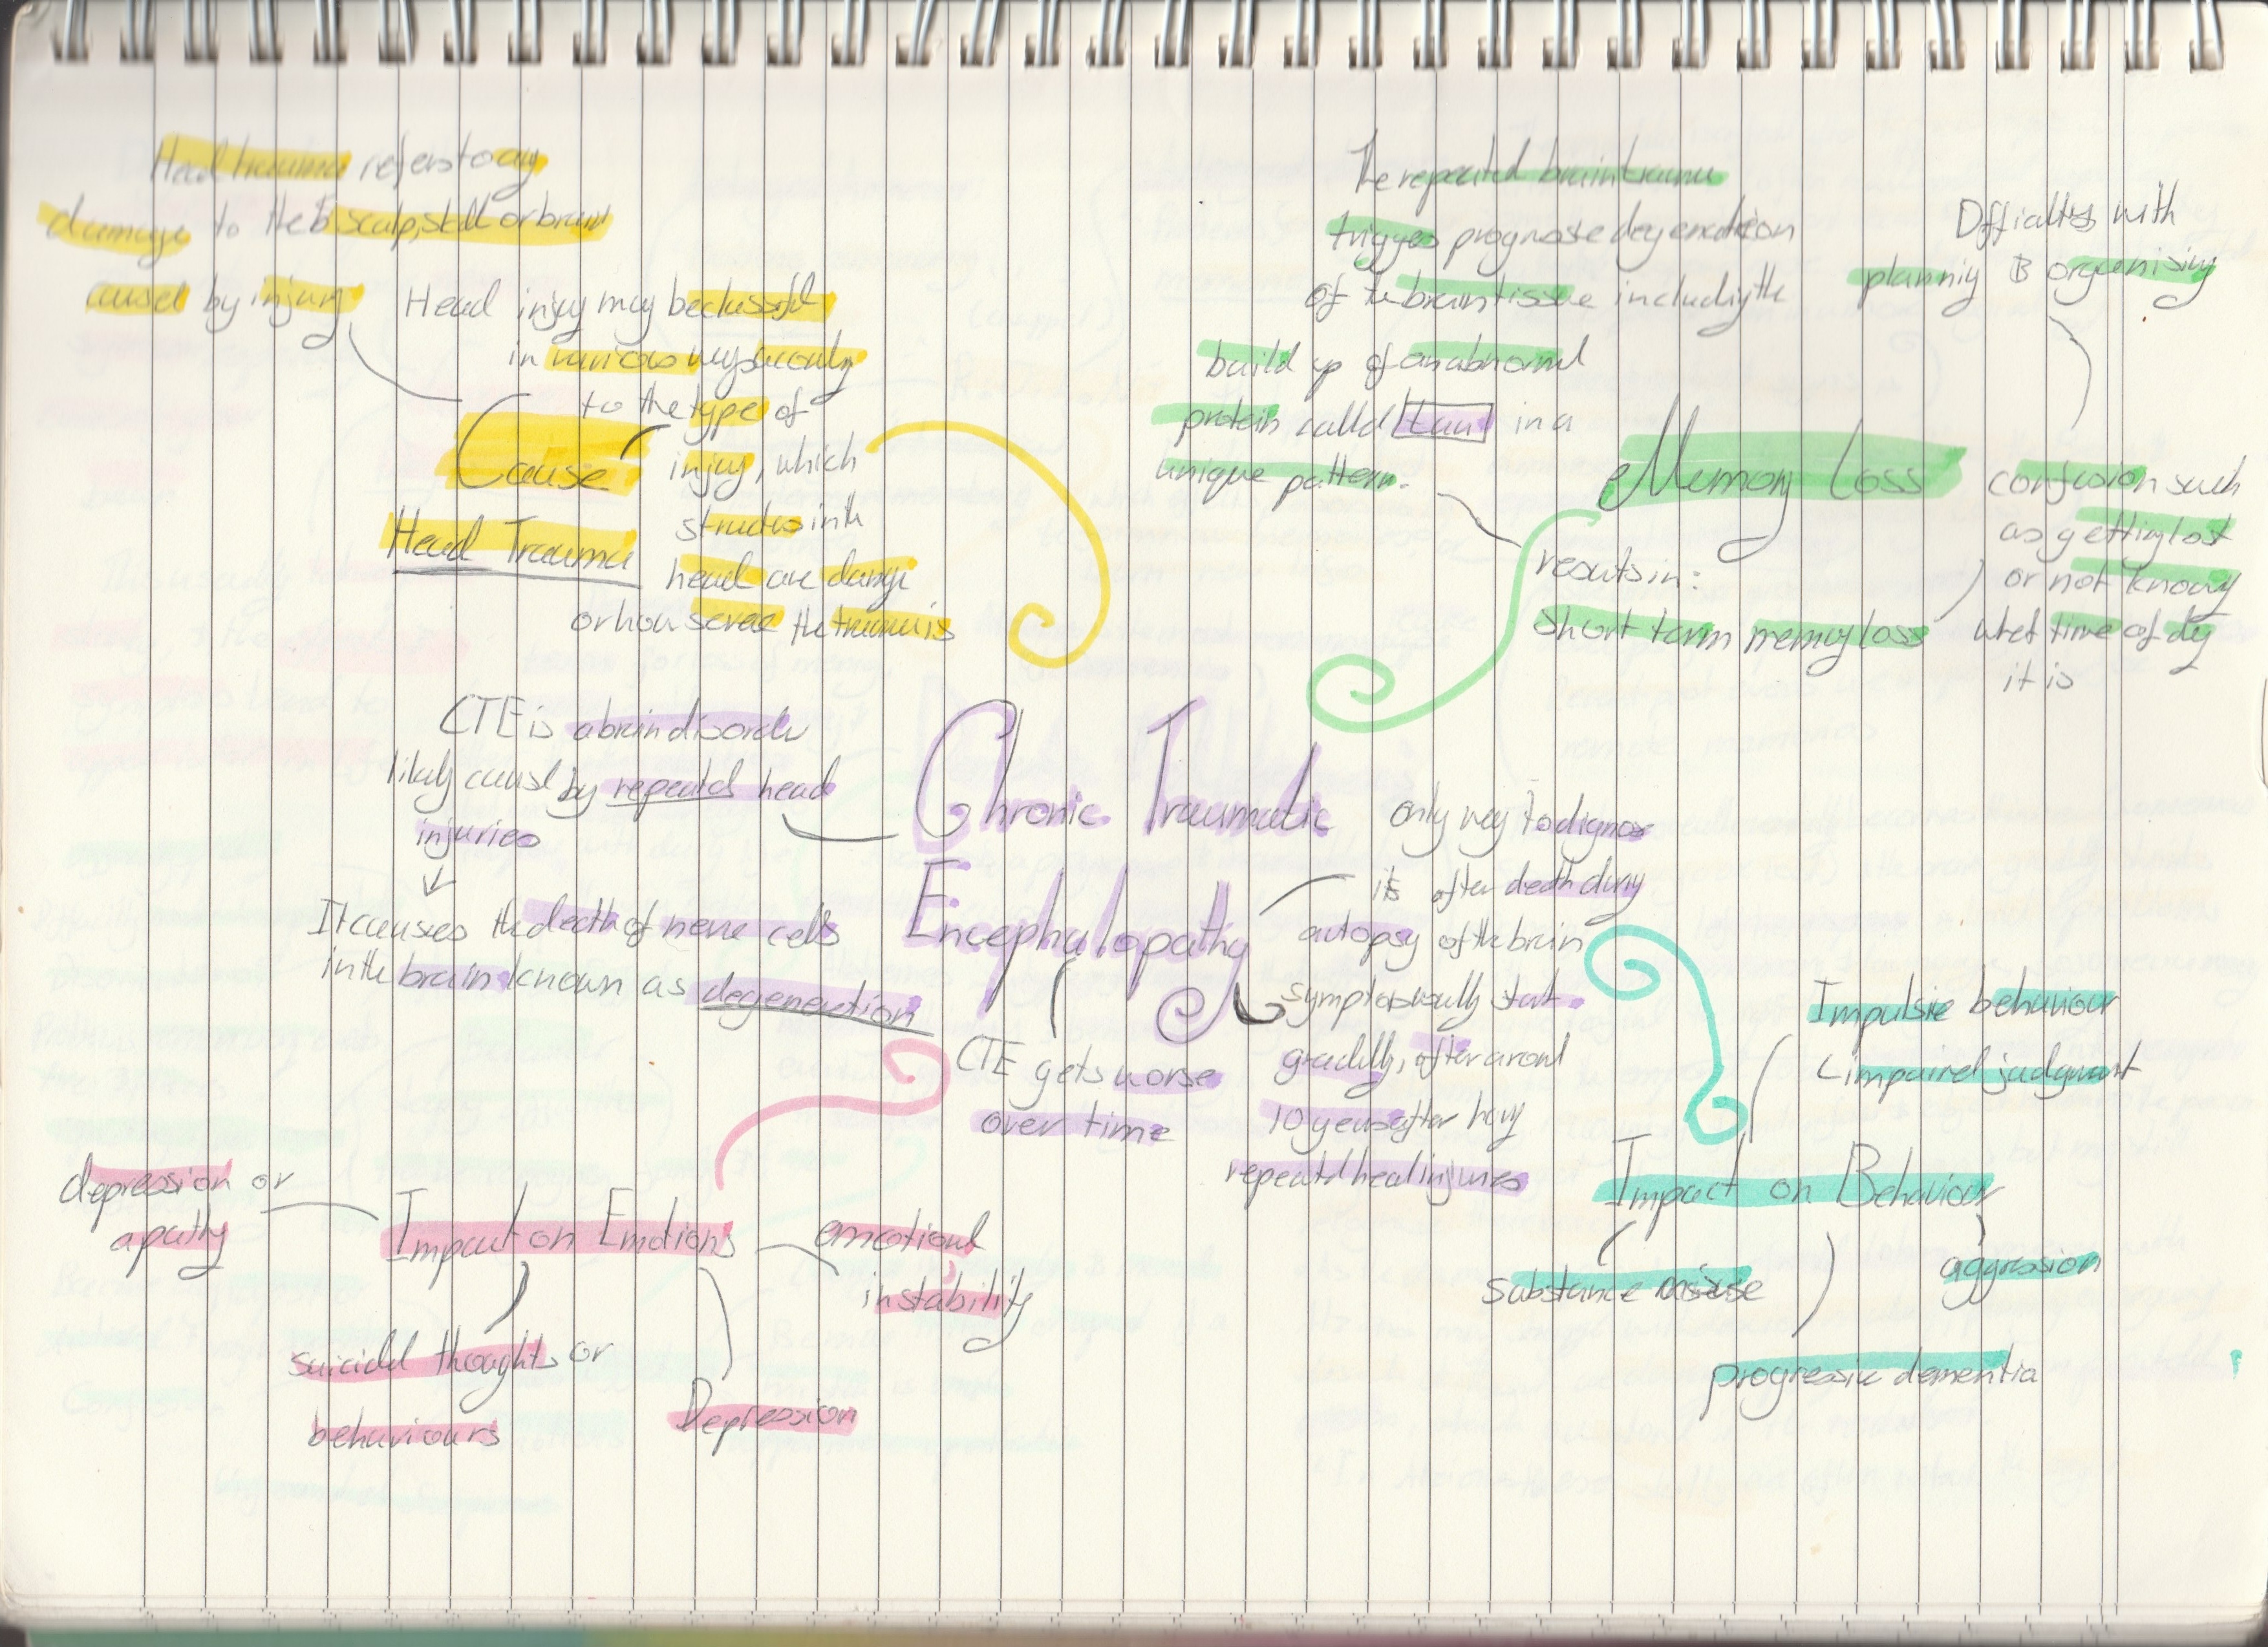 Head trauma refers to any
damage to the scalp, skull or brain
caused by injury
Head injury may be classified
in various ways
to the type of
injury, which
in the
head are
or how the trauma is
Cause
Head Trauma
The repeated brain trauma
of the brain tissue including the
build up of an abnormal
protein called tau in a
unique pattern.
Memory Loss
results in:
short term memory loss
Difficultys with
planning & organising
confusion such
as getting lost
or not knowing
what time of day
it is
CTE is a brain disorder
likely caused by repeated head
injuries
It causes the death of nerve cells
in the brain known as degeneration
Chronic Traumatic
Encephalopathy
CTE gets worse
over time
only way to
is after death during
autopsy of the brain
symptoms usually start
gradually, after around
10 years after having
repeated head injuries
Impact on Emotions
depression or
apathy
suicidal thoughts or
behaviours
Depression
emotional
instability
Impact on Behaviour
Impulsive behaviour
impaired judgment
substance misuse
progressive dementia
aggression